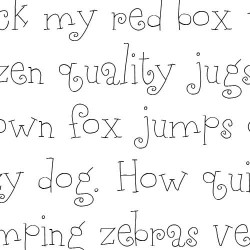 ck my red box
zen quality jugs
own fox jumps
y dog. How qui
mping zebras ve